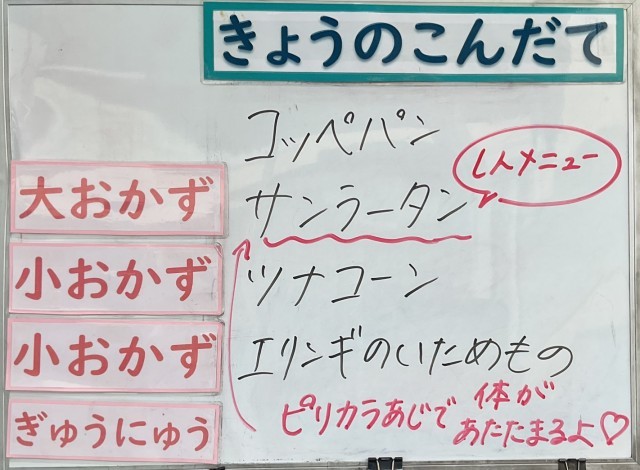 きょうのこんだて
コッペパン
大おかず サンラータン
しんメニュー
小おかず ツナコーン
小おかず エリンギのいためもの
ぎゅうにゅう
ピリカラあじで 体が
あたたまるよ♡